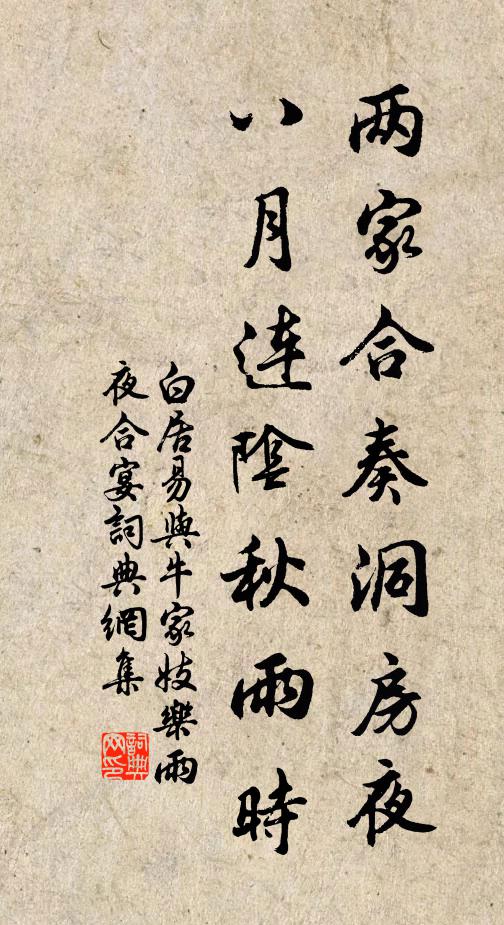 两家合奏洞房夜
八月連陰秋雨時
白居易與牛家妓樂雨
夜合宴詞典網集
詞典网印